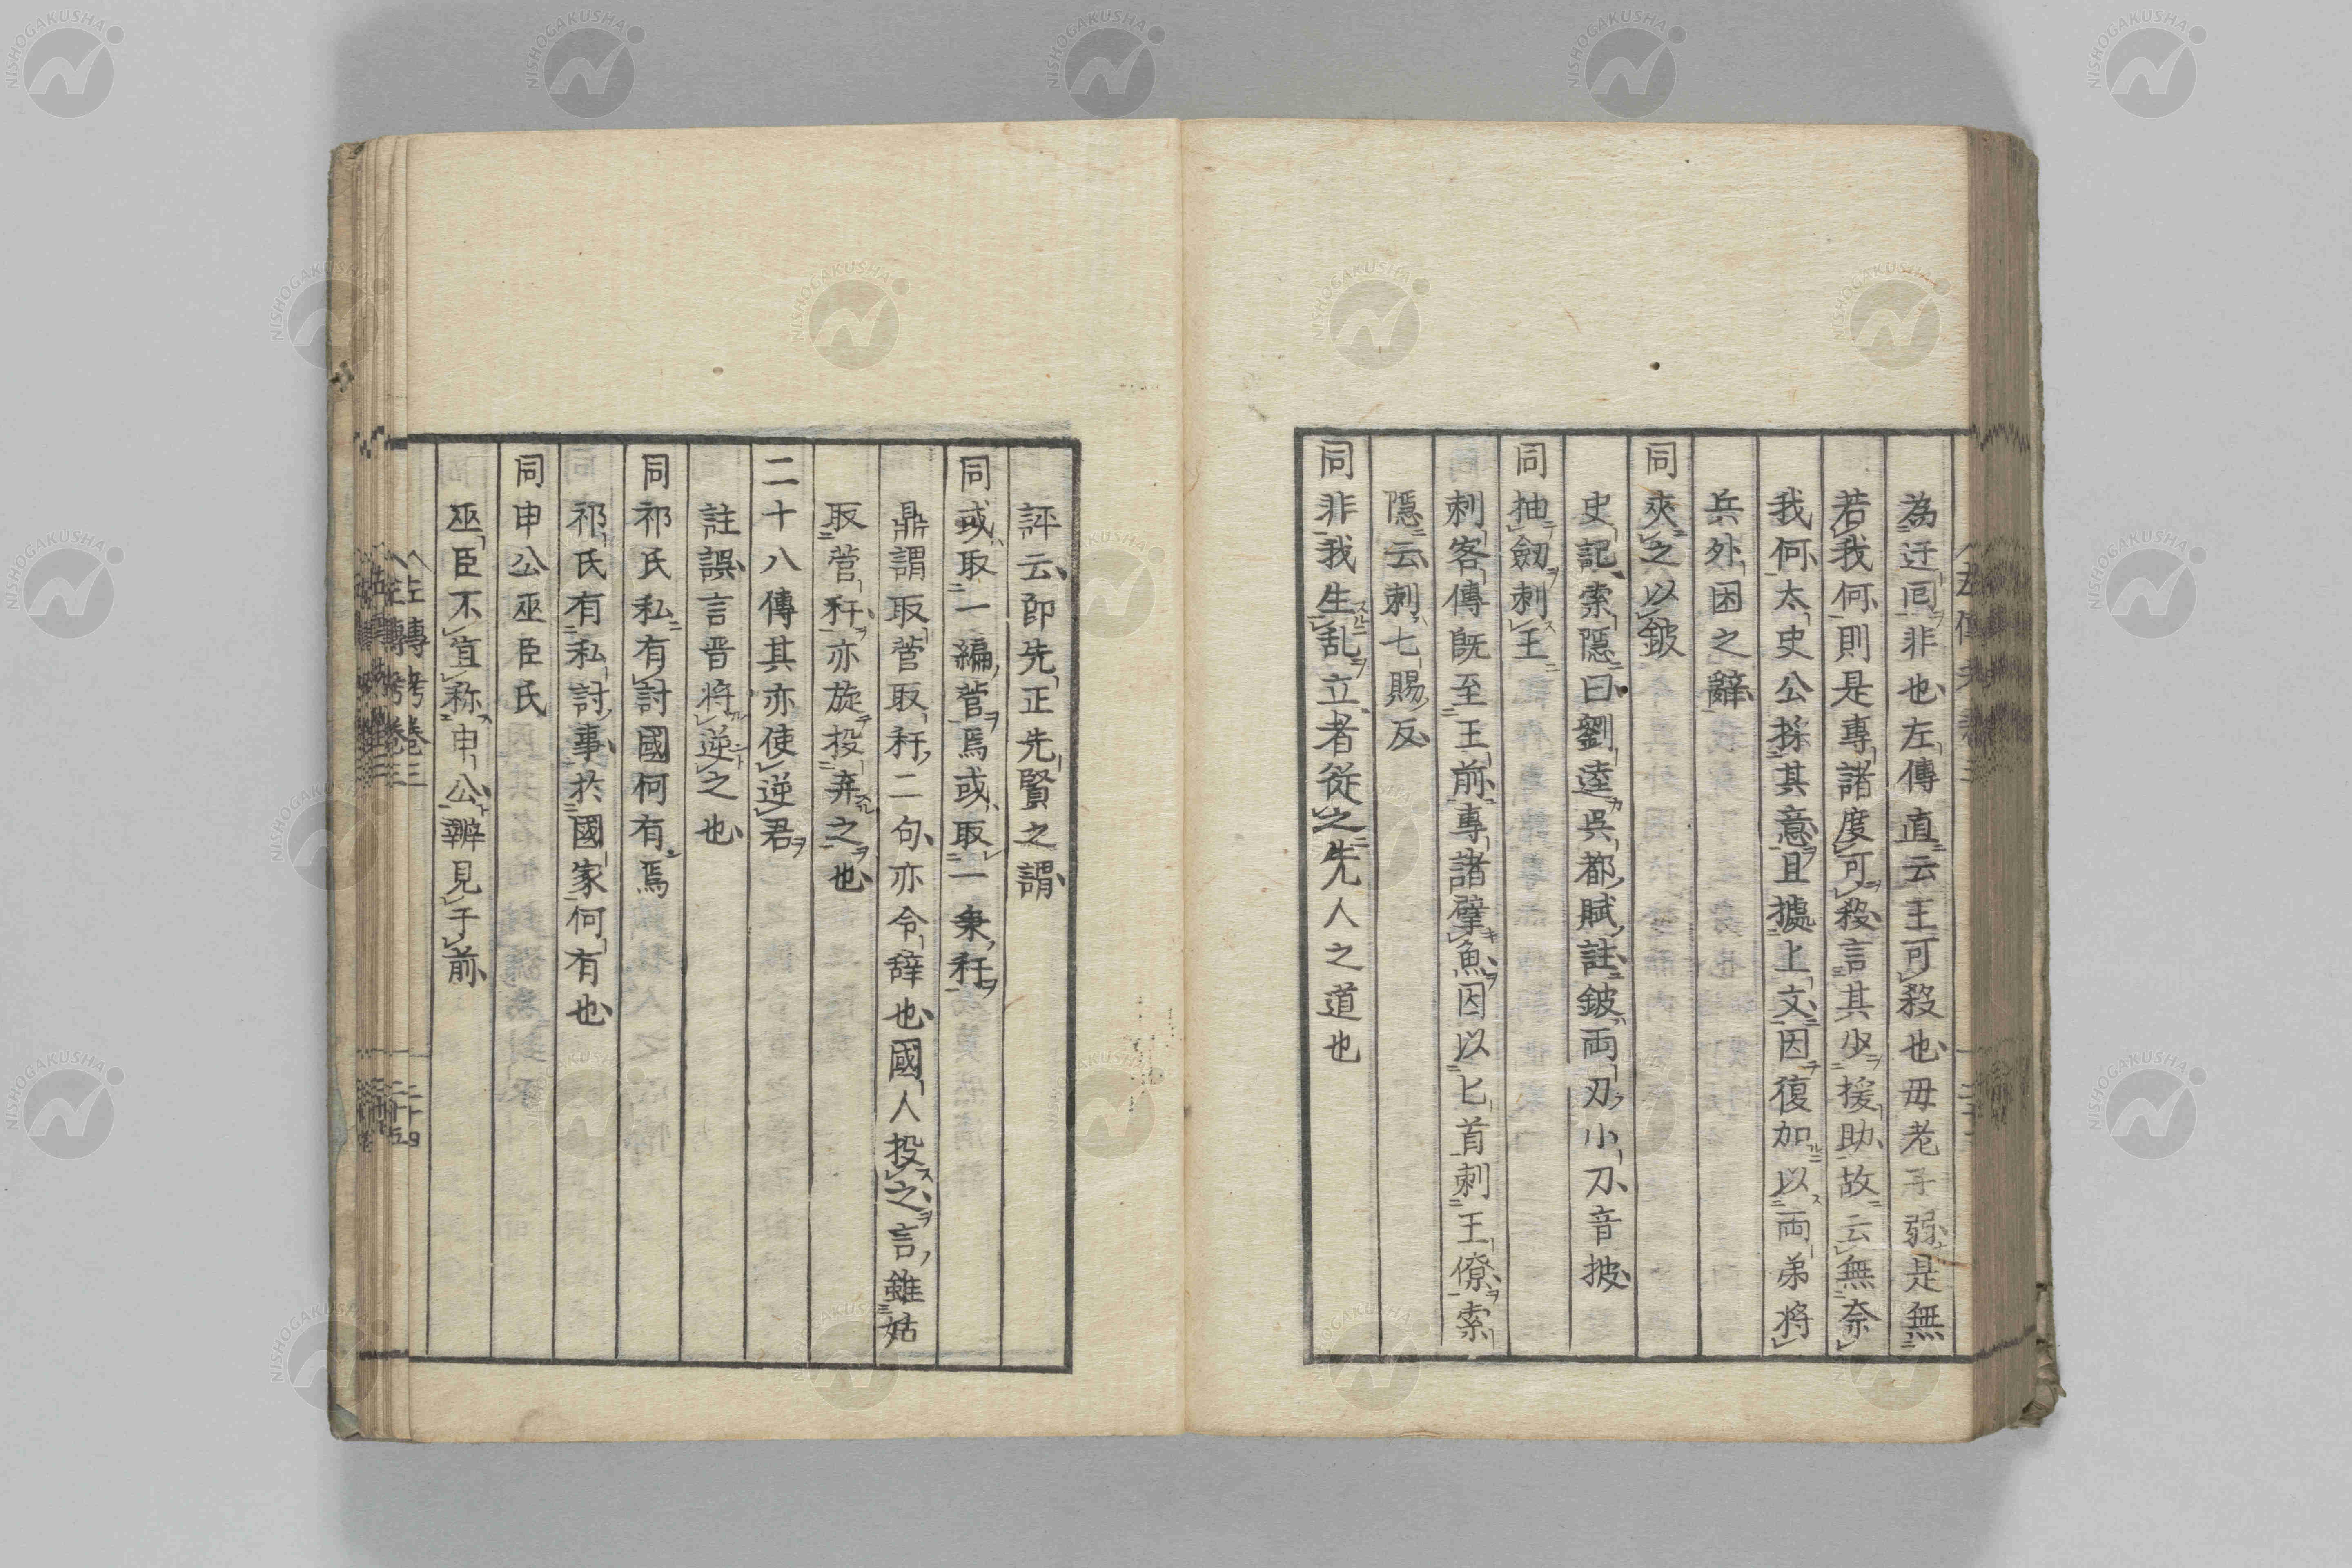 為迂回非也左傳直云王可殺也毋老子弱是無
若我何則是專諸度可殺言其少援助故云無奈
我何太史公採其意且據上文因復加以両弟将
兵外困之辭
同夾之以鈹
史記索隱曰劉逵呉都賦註鈹両刃小刀音披
同抽劔刺王
刺客傳既至王前專諸擘魚因以匕首刺王僚索
隱云刺七賜反
同非我生乱立者従之先人之道也
評云即先正先賢之謂
同或取一編菅焉或取一秉秆
鼎謂取菅取秆二句亦令辞也國人投之言雖姑
取菅秆亦旋投弃之也
二十八傳其亦使逆君
註誤言晋将逆之也
同祁氏私有討國何有焉
祁氏有私討事於國家何有也
同申公巫臣氏
巫臣不宜称申公辨見于前
左傳考卷三
二十四